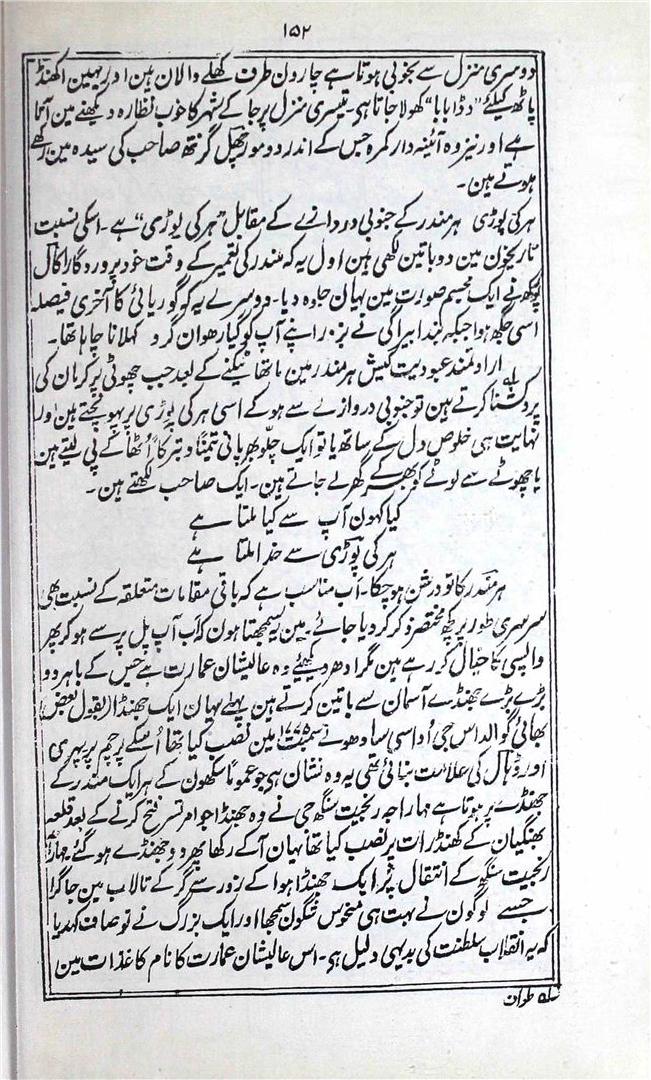 ۱۵۲
دوسری منزل سے بخوبی ہوتا ہے چارون طرف کھلے والان ہین اور یہین اکھنڈ
پاٹھ کیلئے "دڈا بابا" کھولا جاتا ہی۔ تیسری منزل پر جا کے شہر کا خوب نظارہ دیکھنے مین آتا
ہے اور نیز وہ آئینہ دار کمرہ جس کے اندر دو مورچھل گرنتھ صاحب کی سیدہ مین رکھے
ہوتے ہین۔
ہر کی پوڑی ہر مندر کے جنوبی دروازے کے مقابل "ہر کی پوڑی" ہے۔ اسکی نسبت
تاریخون مین دو باتین لکھی ہین اول یہ کہ مندر کی تعمیر کے وقت خود پروردگار اکال
پورکھ نے ایک مجسم صورت مین یہان جلوہ دیا۔ دوسرے یہ کہ گوریائی کا آخری فیصلہ
اسی جگھ ہوا جبکہ بندا بیراگی نے بزور اپنے آپ کو گیارھوان گرو کہلانا چاہا تھا۔
ارادتمند عبودیت کیش ہر مندر مین ماتھا ٹیکنے کے بعد جب چھوٹی پرکرمان کی
پردکشنا کرتے ہین تو جنوبی دروازے سے ہو کے اسی ہر کی پوڑی پر پہونچتے ہین اور
نہایت ہی خلوص دل کے ساتھ یا تو ایک چلّو بھر پانی تیمّناً و تبرکاً اُٹھا کے پی لیتے ہین
یا چھوٹے سے لوٹے کو بھر کے گھر لے جاتے ہین۔ ایک صاحب لکھتے ہین۔
کیا کہون آپ سے کیا ملتا ہے
ہر کی پوڑی سے خدا ملتا ہے
ہر مندر کا تو درشن ہو چکا۔ اب مناسب ہے کہ باقی مقامات متعلقہ کے نسبت بھی
سرسری طور پر کچھ مختصر ذکر کر دیا جائے۔ مین یہ سمجھتا ہون کہ اب آپ پل پر سے ہو کر پھر
واپسی کا خیال کر رہے ہین مگر ادھر دیکھئے وہ عالیشان عمارت ہے جس کے باہر دو
بڑے بڑے جھنڈے آسمان سے باتین کرتے ہین پہلے یہان ایک جھنڈا (بقول بعض)
بھائی گوالداس جی اُداسی سادھو نے سمبت ۱۷۷۵ مین نصب کیا تھا اُسکے پرچم پر چھری
اور ڈہال کی علامت بنائی تھی یہ وہ نشان ہی جو عموماً سکھون کے ہر ایک مندر کے
جھنڈے پر ہوتا ہے مہاراجہ رنجیت سنگھ جی نے وہ جھنڈا جو امرتسر فتح کرنے کے بعد قلعہ
بھنگیان کے کھنڈرات پر نصب کیا تھا یہان آ کے رکھا پھر دو جھنڈے ہو گئے مہاراجہ
رنجیت سنگھ کے انتقال پر ایک جھنڈا ہوا کے زور سے گر کے تالاب مین جا گرا
جسے لوگون نے بہت ہی منحوس شگون سمجھا اور ایک بزرگ نے تو صاف کہدیا
کہ یہ انقلاب سلطنت کی بدیہی دلیل ہی۔ اس عالیشان عمارت کا نام کاغذات مین
سلہ طوان